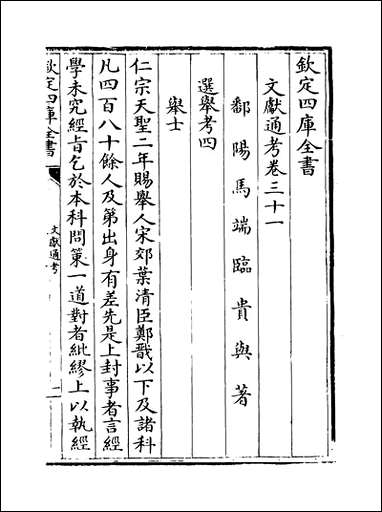 欽定四庫全書
文獻通考卷三十一
鄱陽馬端臨貴與著
選舉考四
舉士
仁宗天聖二年賜舉人宋郊葉清臣鄭戬以下及諸科
凡四百八十餘人及第出身有差先是上封事者言經
學未究經旨乞於本科問策一道對者紕繆上以執經
欽定四庫全書
文獻通考
一